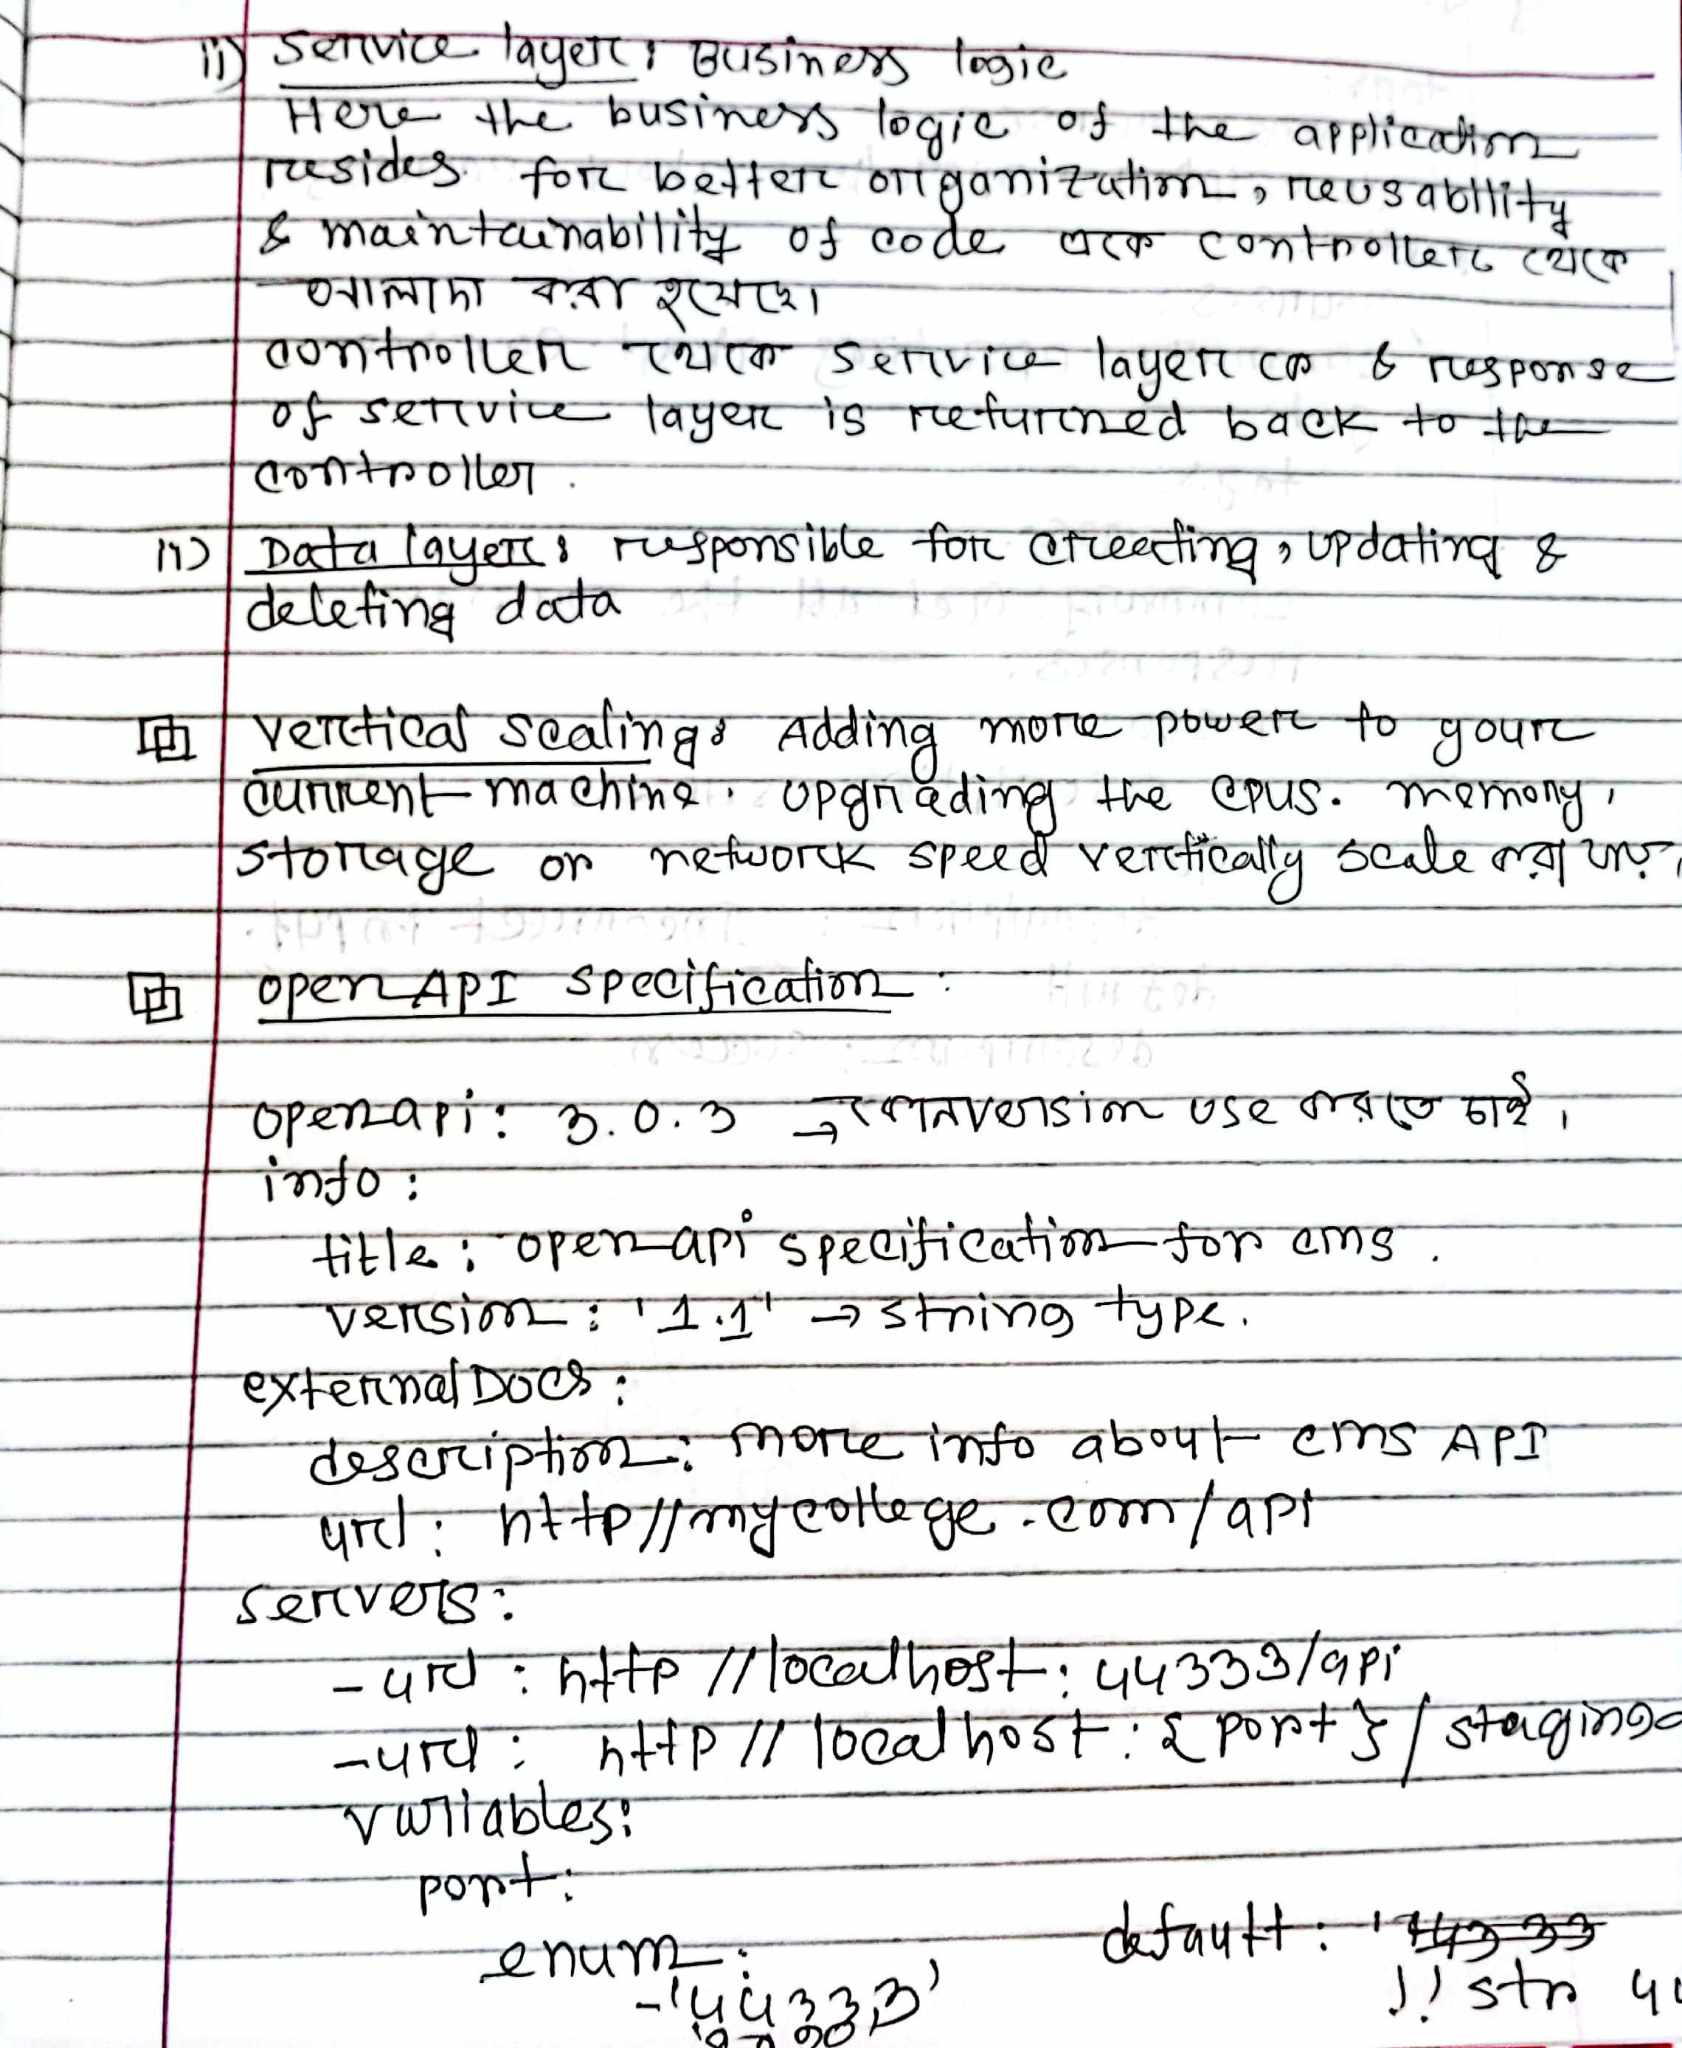 ii) Service layer: Business logic
Here the business logic of the application
resides. for better organization, reusability
& maintainability of code একে controller থেকে
আলাদা করা হয়েছে।
controller থেকে service layer কে & response
of service layer is returned back to the
controller.
Data layer: responsible for creating, updating &
deleting data
Vertical scaling: Adding more power to your
current machine. Upgrading the CPUs. memory,
storage or network speed vertically scale করা যায়।
Open API specification:
openapi: 3.0.3 → কোন version use করতে চাই।
info:
title: open api specification for cms.
version: '1.1' → string type.
externalDocs:
description: more info about cms API
url: http//mycollege.com/api
servers:
- url: http//localhost:44333/api
- url: http//localhost:{port}/staging
variables:
port:
enum: default:
- '44333' !!str